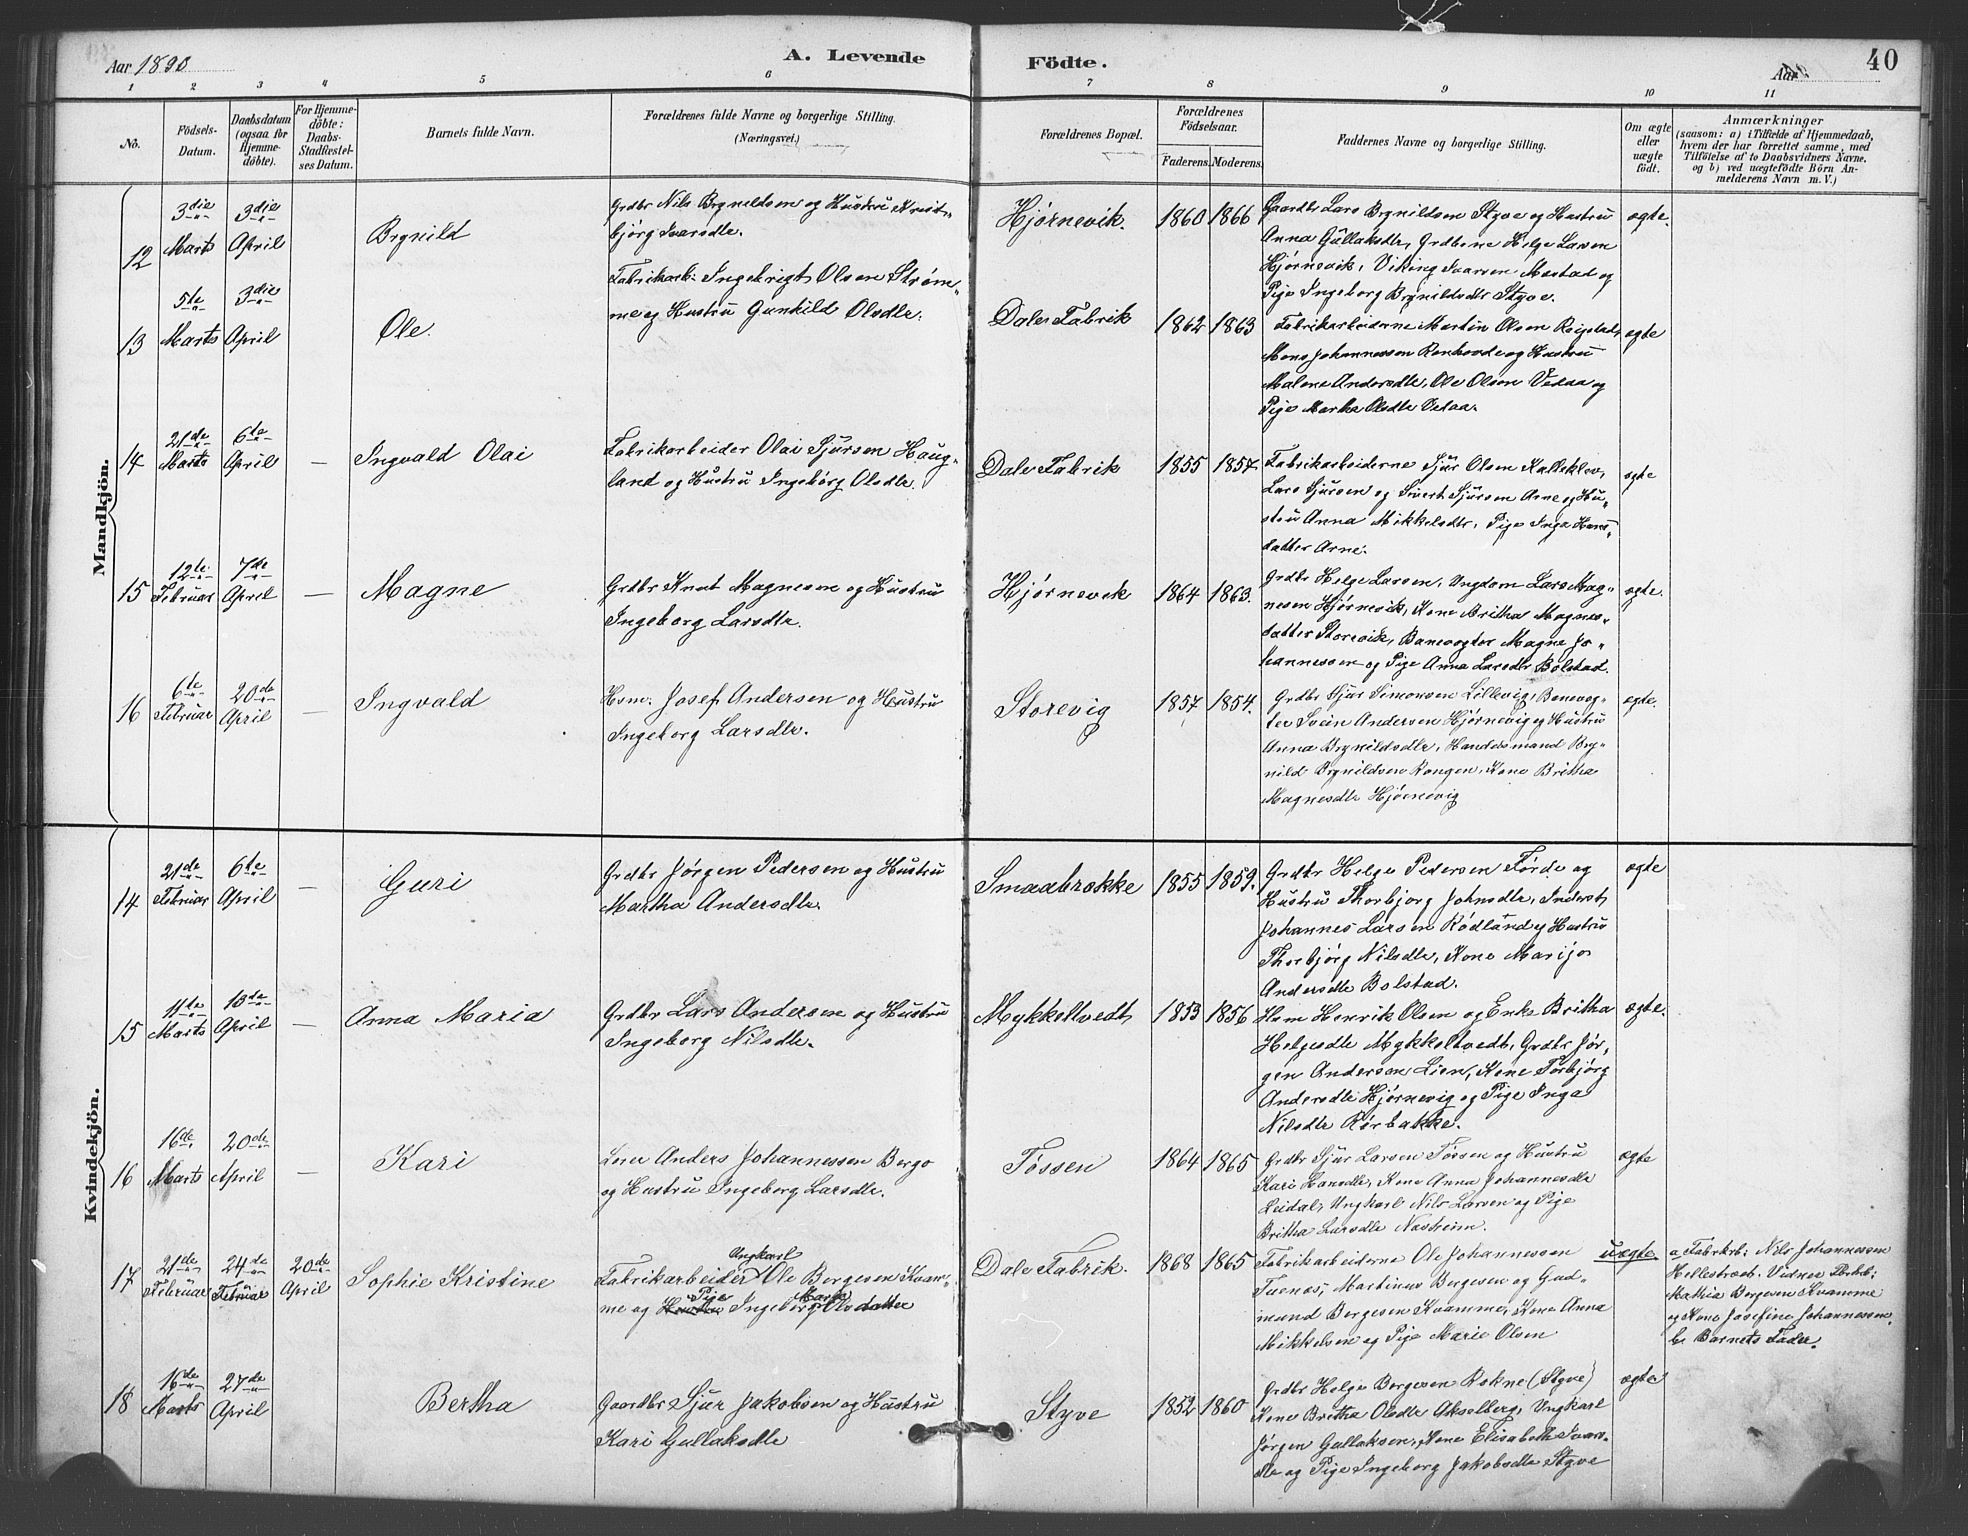 Aar 1890
A. Levende
Födte.
Aar
40
1 2 3 4 5 6 7 8 9 10 11
No.
Födsels-
Datum.
Daabsdatum
(ogsaa for
Hjemme-
döbte).
For Hjemme-
döbte:
Daabs-
Stadfæstel-
ses Datum.
Barnets fulde Navn.
Forældrenes fulde Navne og borgerlige Stilling.
(Næringsvei.)
Forældrenes Bopæl.
Forældrenes
Födselsaar.
Faderens. Moderens.
Faddernes Navne og borgerlige Stilling.
Om ægte
eller
uægte
födt.
Anmærkninger
(saasom: a) i Tilfælde af Hjemmedaab,
hvem der har forrettet samme, med
Tilföielse af to Daabsvidners Navne,
og b) ved uægtefödte Börn An-
melderens Navn m. V.)
Mandkjön.
12
3die
Marts
3die
April
Brynild
Grdbr Nils Brynildsen og Hustru Krist-
bjørg Ivarsdtr.
Hjørnevik.
1860 1866
Gaardbr Lars Brynildsen Styve og Hustru
Anna Gullaksdtr, Grdbrne Helge Larsen
Hjørnevik, Viking Ivarsen Mostad og
Pige Ingeborg Brynildsdtr Styve.
ægte.
13
5te
Marts
3die
April
Ole.
Fabrikarb: Ingebrigt Olsen Strøm-
me og Hustru Gunhild Olsdtr.
Dale Fabrik
1862 1863
Fabrikarbeiderne Martin Olsen
Mons Johannessen og Hustru
Malene Andersdtr, Ole Olsen Vedaa og
Pige Marta Olsdtr Vedaa.
ægte
14
21de
Marts
6te
April
—
Ingvald Olai
Fabrikarbeider Olai Sjursen Haug-
land og Hustru Ingeborg Olsdtr.
Dale Fabrik
1855 1857
Fabrikarbeiderne Sjur Olsen Kalleklev,
Lars Sjursen og Sivert Sjursen Arne og Hu-
stru Anna Mikkelsdtr, Pige Inga Hans-
datter Arne.
ægte
15
12te
Februar
7de
April
—
Magne
Grdbr Knut Magnesen og Hustru
Ingeborg Larsdtr.
Hjørnevik
1864 1863.
Grdbr Helge Larsen, Ungdom Lars Mag-
nesen Hjørnevik, Kone Britha Magnes-
datter Storevik, Banevogter Magne Jo-
hannessen og Pige Anna Larsdtr Bolstad.
ægte.
16
6te
Februar
20de
April
—
Ingvald
Hsm. Josef Andersen og Hustru
Ingeborg Larsdtr.
Storevig
1857 1854.
Grdbr Sjur Simonsen Lillevig, Banevog-
ter Svein Andersen Hjørnevig og Hustru
Anna Brynildsdtr, Handelsmand Bry-
nild Brynildsen Rongen, Kone Britha
Magnesdtr Hjørnevig
ægte.
Kvindekjön.
14
21de
Februar
6te
April
—
Guri
Grdbr Jørgen Pedersen og Hustru
Martha Andersdtr.
Smaabrække
1855 1859.
Grdbr Helge Pedersen Førde og
Hustru Thorbjørg Johnsdtr, Inderst
Johannes Larsen Rødland og Hustru
Thorbjørg Nilsdtr, Kone Marijo
Andersdtr Bolstad.
ægte
15
11te
Marts
13de
April
—
Anna Maria
Grdbr Lars Andersen og Hustru
Ingeborg Nilsdtr.
Mykkeltvedt
1853 1856
Hsm Henrik Olsen og Enke Britha
Helgesdtr Mykkeltvedt, Grdbr Jør-
gen Andersen Lien, Kone Torbjørg
Andersdtr Hjørnevig og Pige Inga
Nilsdtr Rørbakke.
ægte.
16
16de
Marts
20de
April
—
Kari
Anders Johannessen Berge
og Hustru Ingeborg Larsdtr.
Tøssen
1864 1865
Grdbr Sjur Larsen Tøssen og Hustru
Kari Hansdtr, Kone Anna Johannesdtr
Leidal, Ungkarl Nils Larsen og Pige
Britha Larsdtr
ægte
17
21de
Februar
24de
Februar
20de
April
Sophie Kristine
Ungkarl
Fabrikarbeider Ole Bergesen Kvam-
Pige Marta
me og Hustru Ingeborg Olsdatter
Dale Fabrik.
1868 1865
Fabrikarbeiderne Ole Johannessen
Tuenes, Martinus Bergesen og Gud-
mund Bergesen Kvamme, Kone Anna
Mikkelsen og Pige Marie Olsen
uægte
a, Fabrkrb: Nils Johannessen
Hellestræ. Vidner
Mathia Bergesen Kvamme
og Kone Josefine Johannessen.
b, Barnets Fader.
18
16de
Marts
27de
April
Bertha
Gaardbr Sjur Jakobsen og Hustru
Kari Gullaksdtr
Styve
1852 1860
Grdbr Helge Bergesen Rokne (Styve)
Kone Britha Olsdtr Akselberg, Ungkarl
Jørgen Gullaksen, Kone Elisabeth Ivars-
dtr og Pige Ingeborg Jakobsdtr Styve
ægte